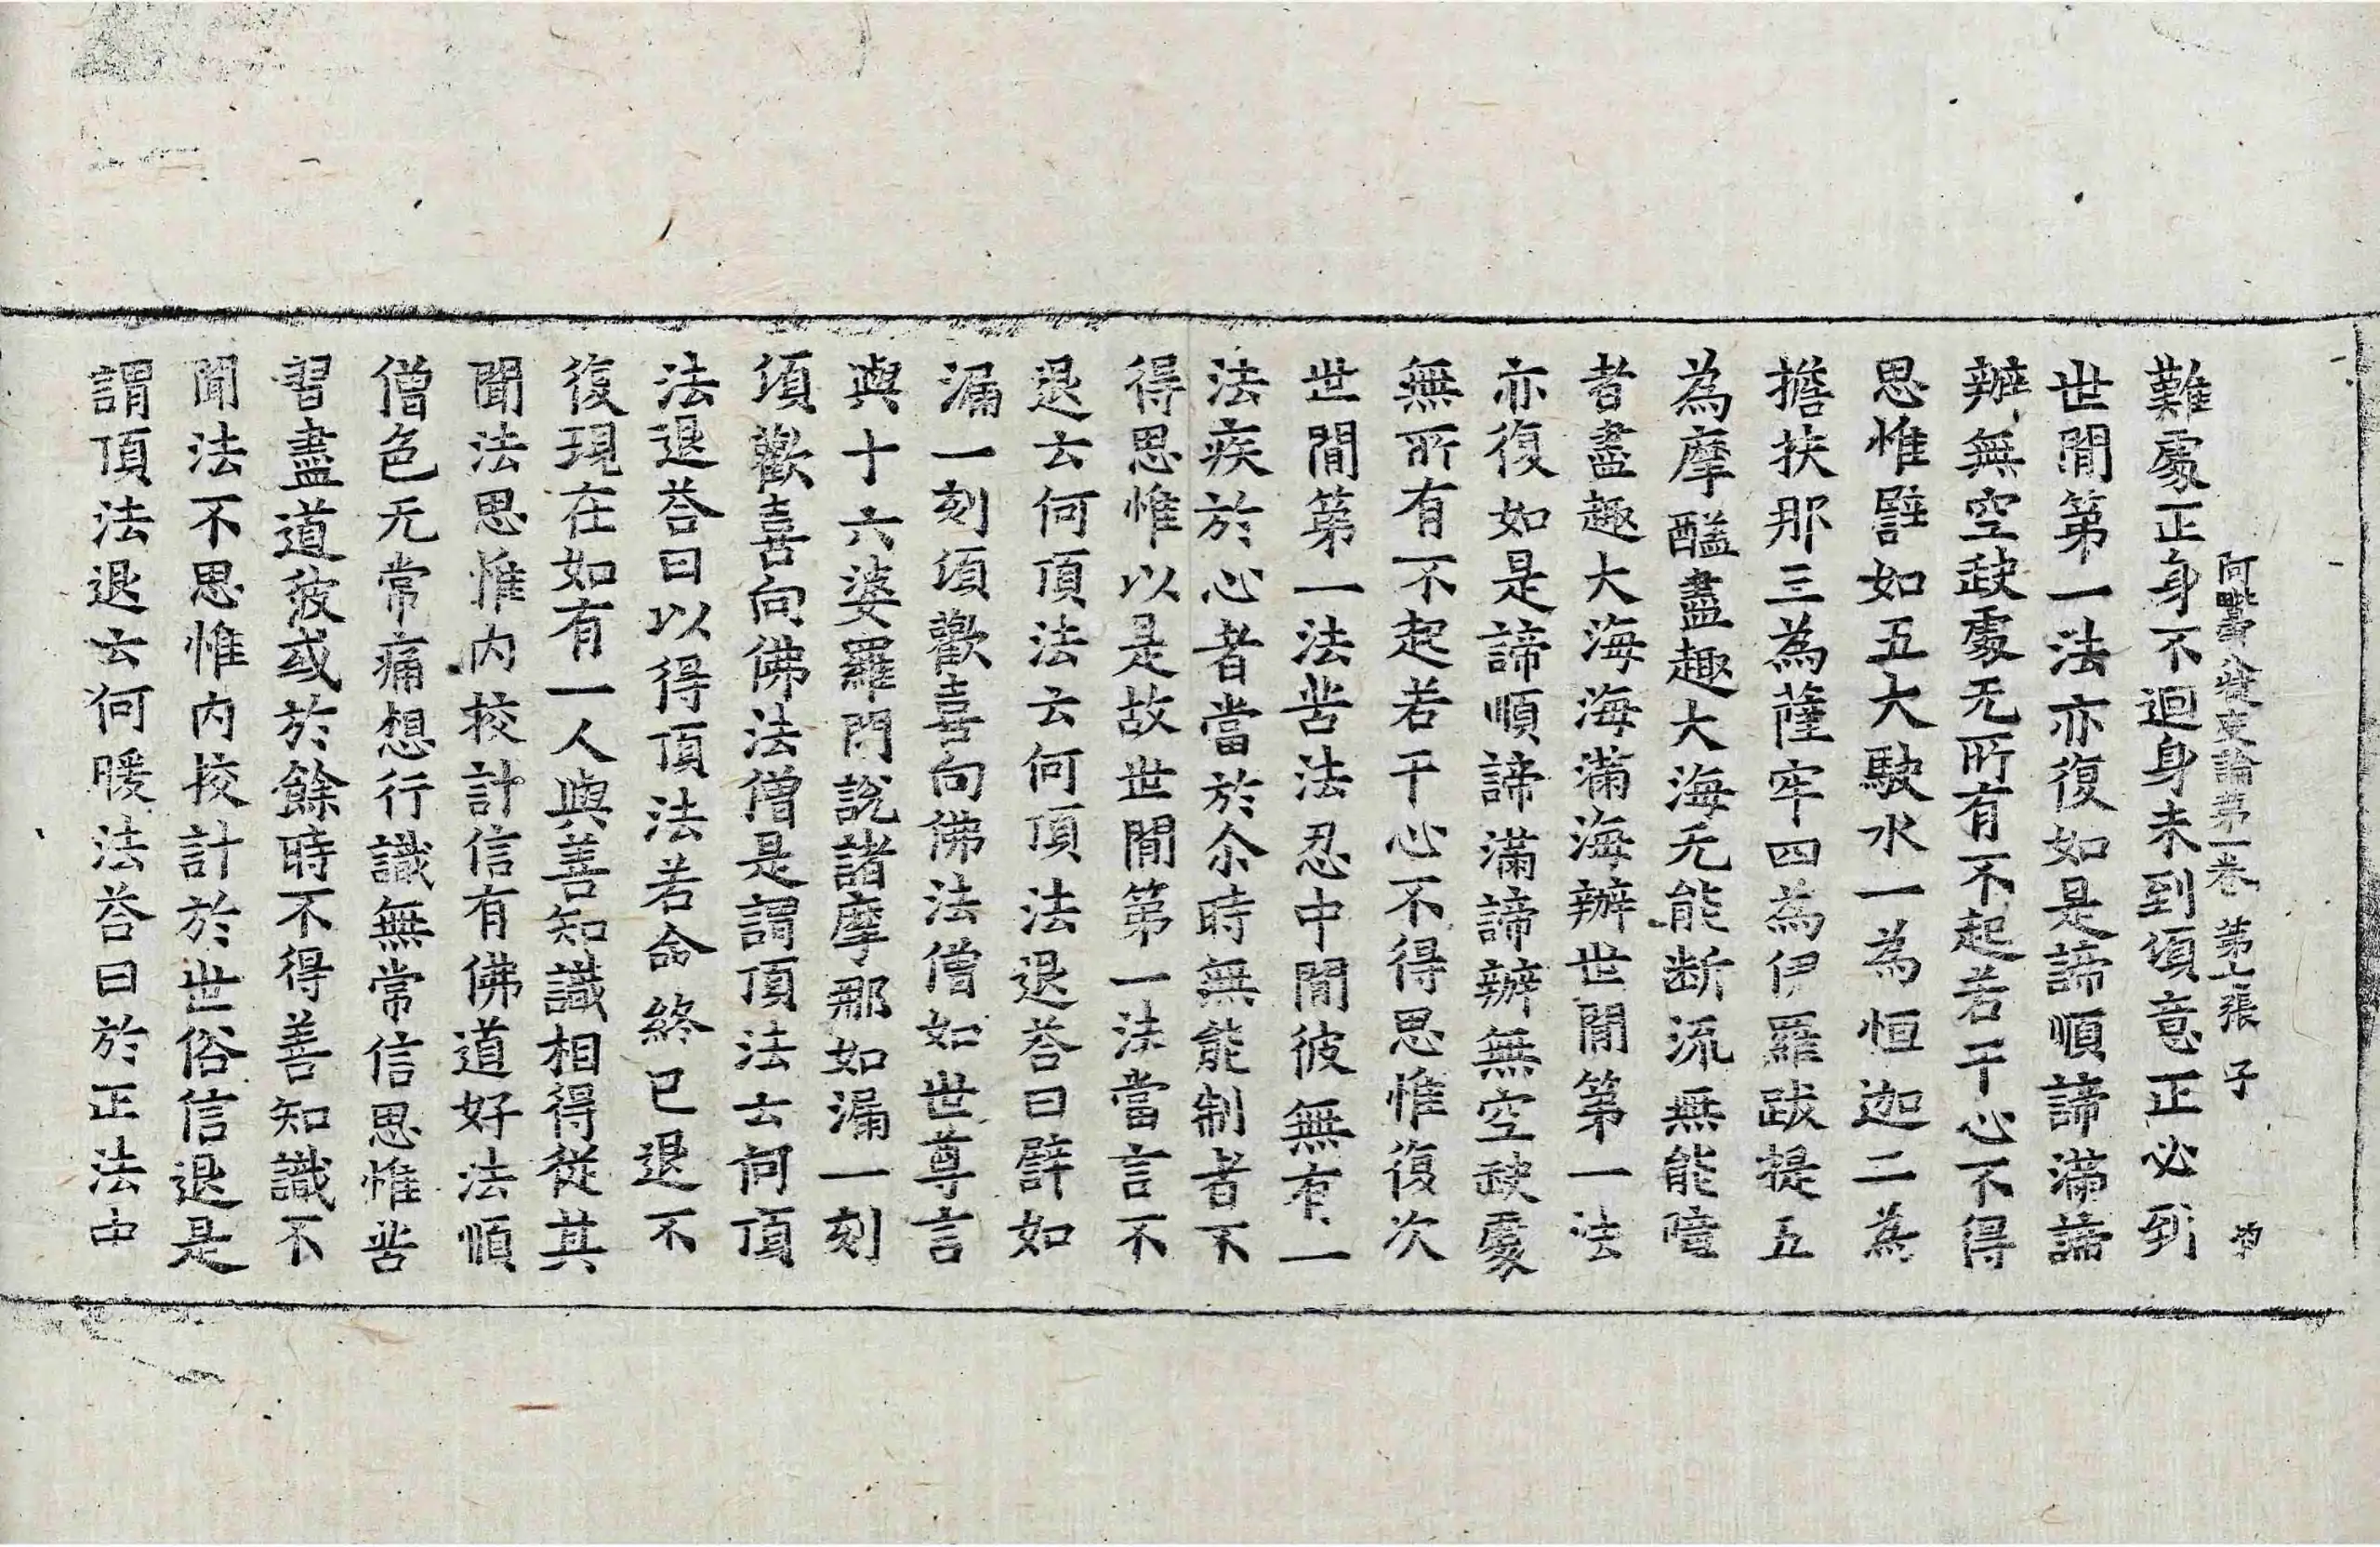 阿毗曇八犍度論第一卷 第七張 子
難處正身不迴身未到須意正必到
世閒第一法亦復如是諦順諦滿諦
辦無空缺處无所有不起若干心不得
思惟譬如五大駛水一為恒迦二為
擔扶那三為薩牢四為伊羅跋提五
為摩醯盡趣大海无能断流無能障
者盡趣大海海滿海辦世閒第一法
亦復如是諦順諦滿諦辦無空缺處
無所有不起若干心不得思惟復次
世閒第一法苦法忍中閒彼無有一
法疾於心者當於尒時無能制者不
得思惟以是故世閒第一法當言不
退云何頂法云何頂法退荅曰譬如
漏一刻須歡喜向佛法僧如世尊言
與十六婆羅門說諸摩那如漏一刻
須歡喜向佛法僧是謂頂法云何頂
法退荅曰以得頂法若命終已退不
復現在如有一人與善知識相得從其
聞法思惟内挍計信有佛道好法順
僧色无常痛想行識無常信思惟苦
習盡道彼或於餘時不得善知識不
聞法不思惟内挍計於世俗信退是
謂頂法退云何暖法荅曰於正法中